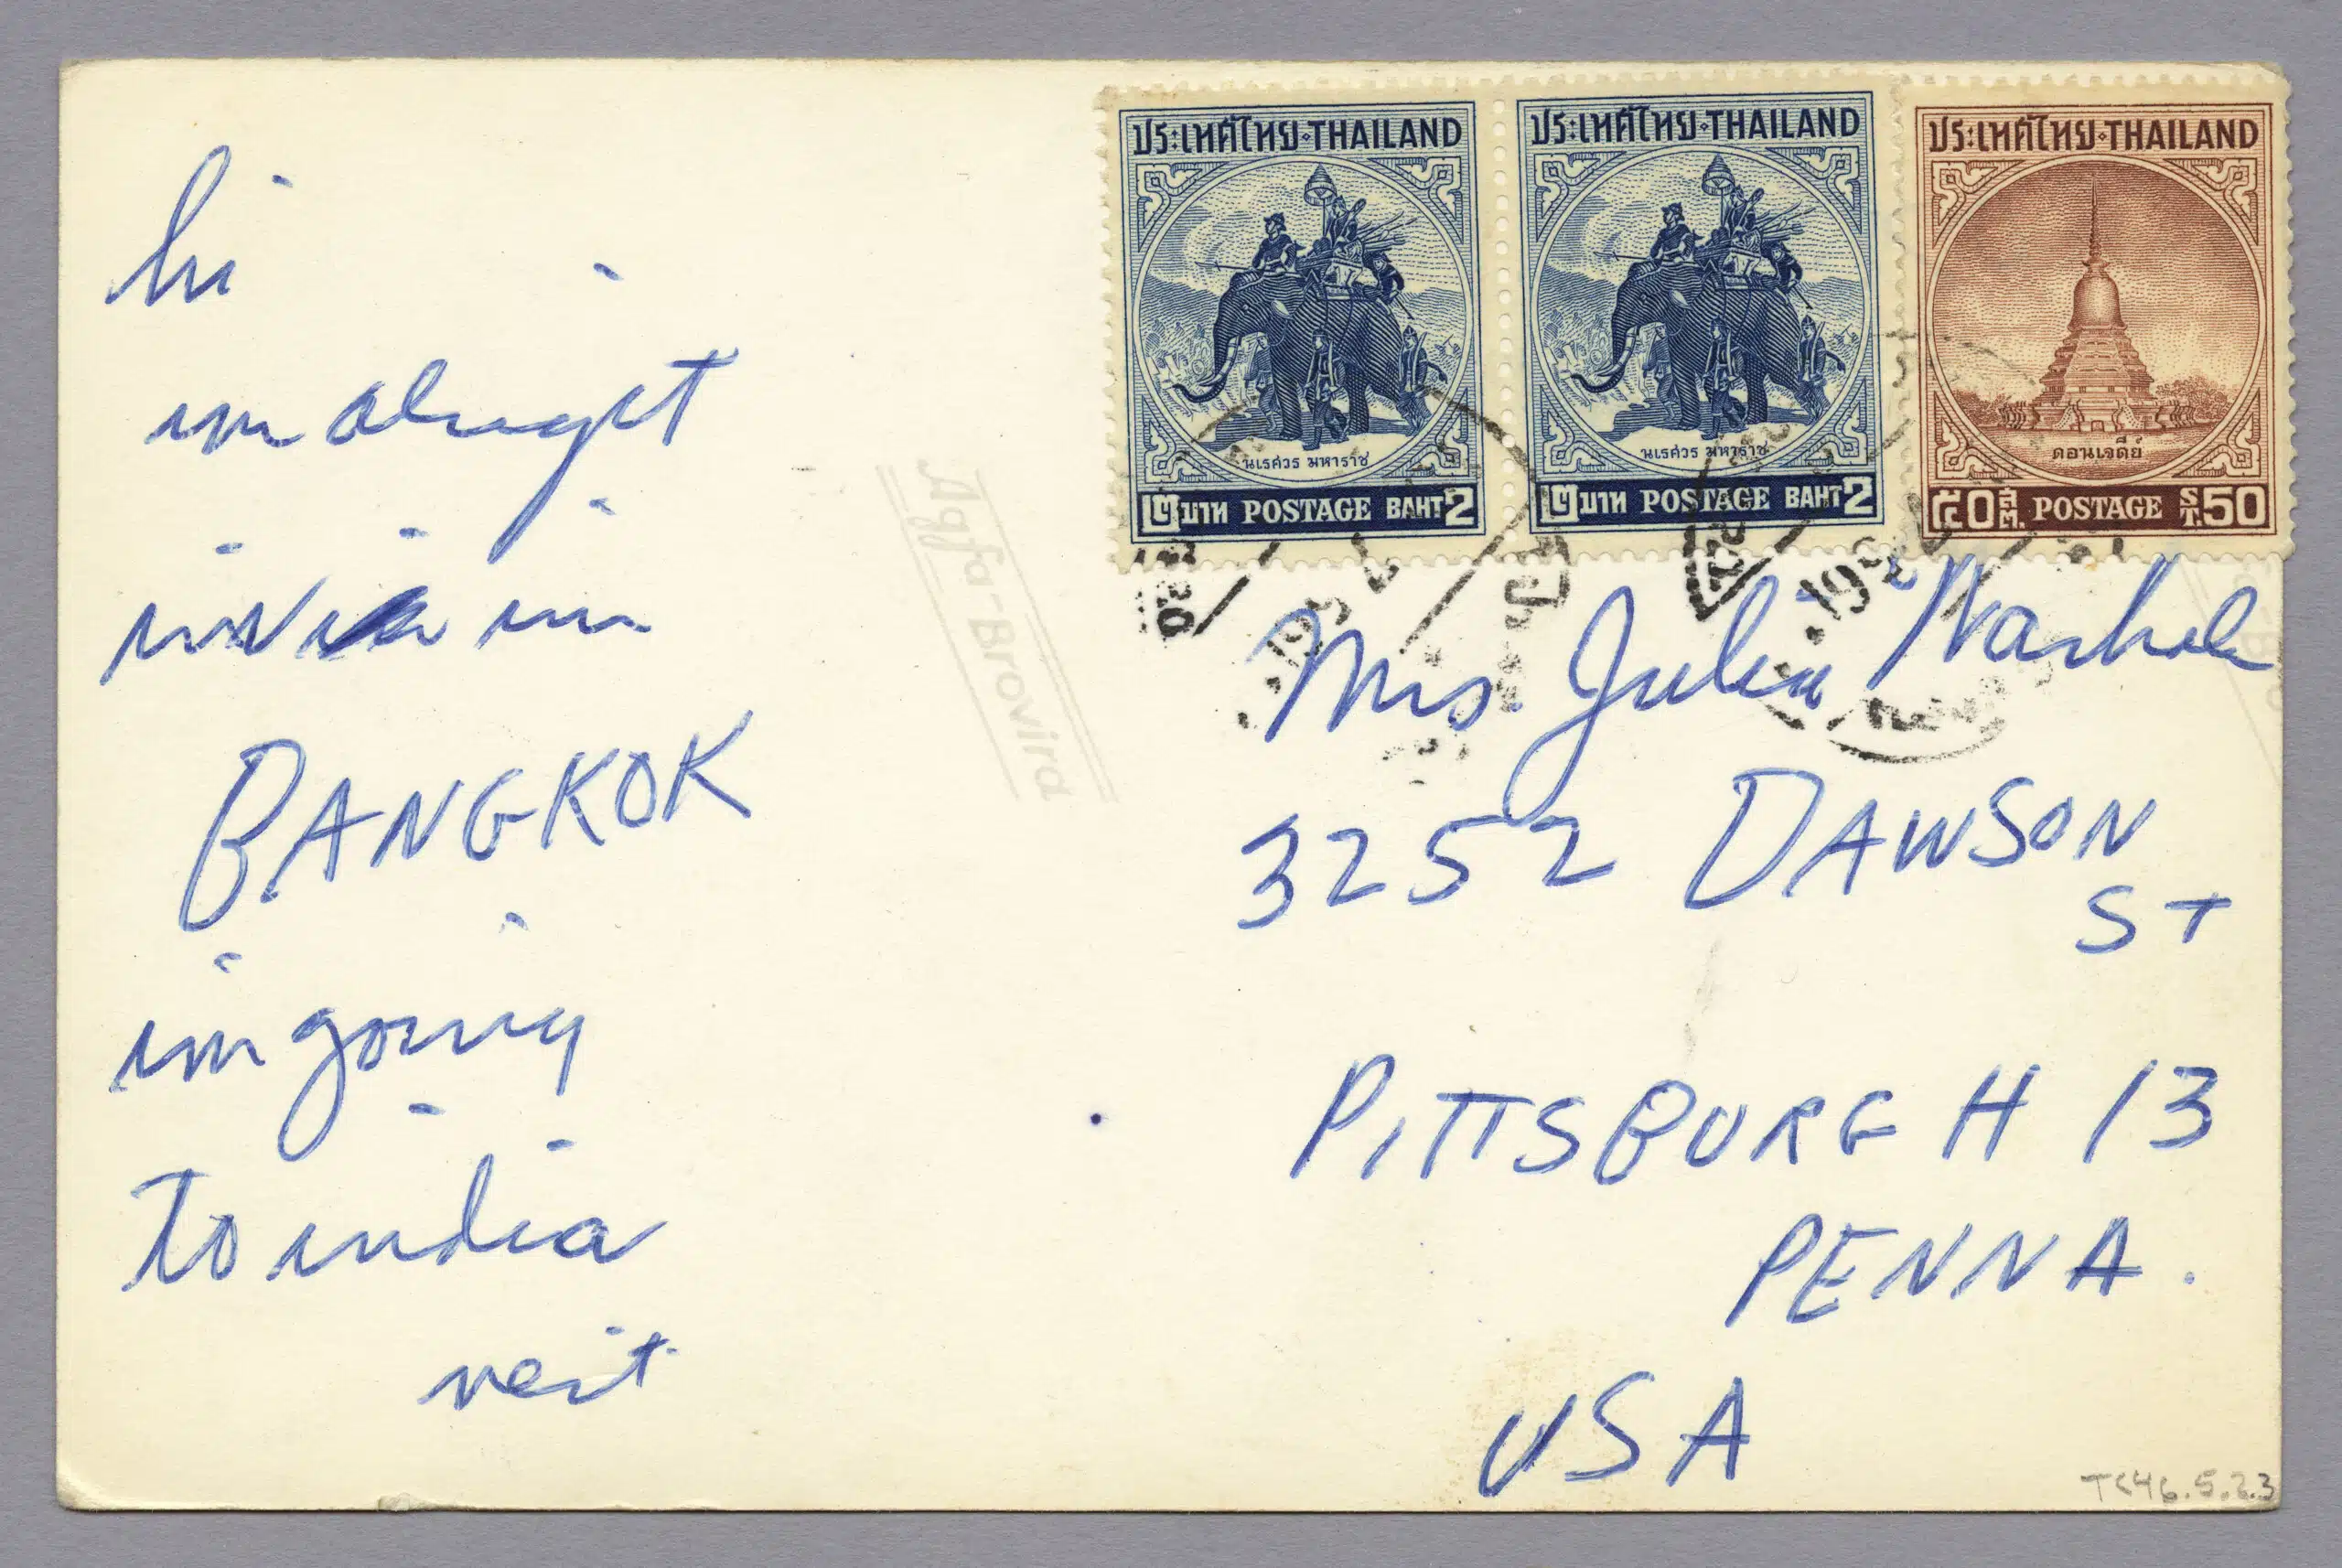 hi
im alright
im in
BANGKOK
im going
to india
next
ประเทศไทย·THAILAND
นเรศวร มหาราช
๒ บาท POSTAGE BAHT 2
ประเทศไทย·THAILAND
นเรศวร มหาราช
๒ บาท POSTAGE BAHT 2
ประเทศไทย·THAILAND
ดอนเจดีย์
๕๐ ส.ต. POSTAGE ST. 50
Agfa-Brovira
Mrs. Julia Warhola
3252 DAWSON
ST
PITTSBURGH 13
PENNA.
USA
TC46.5.23